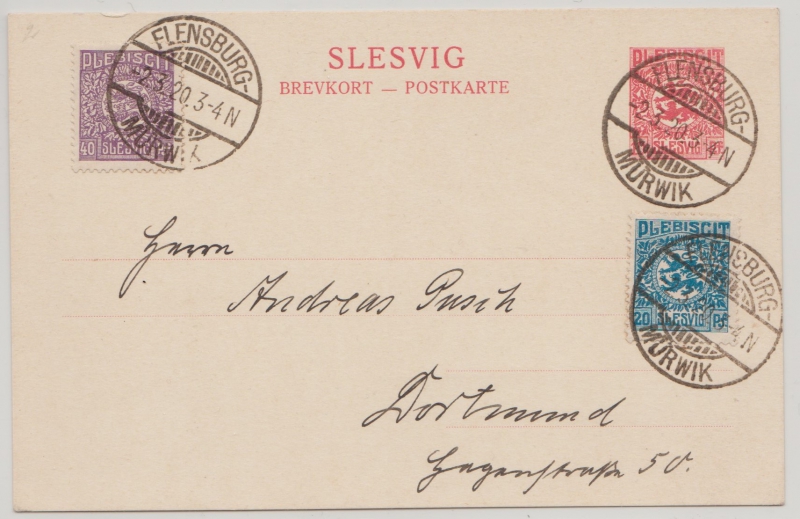 SLESVIG
BREVKORT — POSTKARTE
PLEBISCIT
40 SLESVIG
FLENSBURG-
-2.3.20.3-4N
MÜRWIK
PLEBISCIT
SLESVIG
FLENSBURG-
-2.3.20.3-4N
MÜRWIK
PLEBISCIT
20 SLESVIG PF
FLENSBURG-
-4N
MÜRWIK
Herrn
Andreas Pusch
Dortmund
Hagenstraße 50.